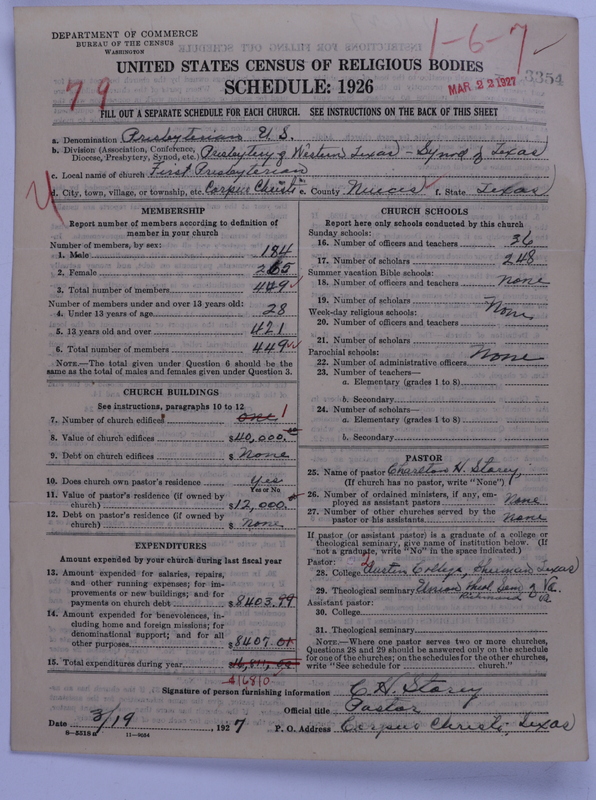 DEPARTMENT OF COMMERCE
BUREAU OF THE CENSUS
WASHINGTON
1-6-7
UNITED STATES CENSUS OF RELIGIOUS BODIES
SCHEDULE: 1926
79
MAR 22 1927
3354
FILL OUT A SEPARATE SCHEDULE FOR EACH CHURCH. SEE INSTRUCTIONS ON THE BACK OF THIS SHEET
a. Denomination Presbyterian U.S.
b. Division (Association, Conference, Diocese, Presbytery, Synod, etc.) Presbytery of Western Texas - Synod of Texas
c. Local name of church First Presbyterian
d. City, town, village, or township, etc. Corpus Christi e. County Nueces f. State Texas
MEMBERSHIP
Report number of members according to definition of
member in your church
Number of members, by sex:
1. Male 184
2. Female 265
3. Total number of members 449
Number of members under and over 13 years old:
4. Under 13 years of age 28
5. 13 years old and over 421
6. Total number of members 449
NOTE.—The total given under Question 6 should be the
same as the total of males and females given under Question 3.
CHURCH BUILDINGS
See instructions, paragraphs 10 to 12
7. Number of church edifices one 1
8. Value of church edifices $40,000.
9. Debt on church edifices $ None
10. Does church own pastor's residence Yes
Yes or No
11. Value of pastor's residence (if owned by
church) $12,000.
12. Debt on pastor's residence (if owned by
church) $ None
EXPENDITURES
Amount expended by your church during last fiscal year
13. Amount expended for salaries, repairs,
and other running expenses; for im-
provements or new buildings; and for
payments on church debt $8403.99
14. Amount expended for benevolences, in-
cluding home and foreign missions; for
denominational support; and for all
other purposes $8407.01
15. Total expenditures during year
CHURCH SCHOOLS
Report here only schools conducted by this church
Sunday schools:
16. Number of officers and teachers 26
17. Number of scholars 248
Summer vacation Bible schools:
18. Number of officers and teachers None
19. Number of scholars
Week-day religious schools: None
20. Number of officers and teachers
21. Number of scholars
Parochial schools: None
22. Number of administrative officers
23. Number of teachers—
a. Elementary (grades 1 to 8)
b. Secondary
24. Number of scholars—
a. Elementary (grades 1 to 8)
b. Secondary
PASTOR
25. Name of pastor Charlton H. Storey
(If church has no pastor, write "None")
26. Number of ordained ministers, if any, em-
ployed as assistant pastors None
27. Number of other churches served by the
pastor or his assistants None
If pastor (or assistant pastor) is a graduate of a college or
theological seminary, give name of institution below. (If
not a graduate, write "No" in the space indicated.)
Pastor:
28. College Austin College, Sherman, Texas
29. Theological seminary Union Theol. Sem. of Va.
Richmond Va.
Assistant pastor:
30. College
31. Theological seminary
NOTE.—Where one pastor serves two or more churches,
Questions 28 and 29 should be answered only on the schedule
for one of the churches; on the schedules for the other churches,
write "See schedule for church."
Signature of person furnishing information C. H. Storey
Official title Pastor
Date 3/19, 1927 P. O. Address Corpus Christi, Texas
8-5518a 11-9054